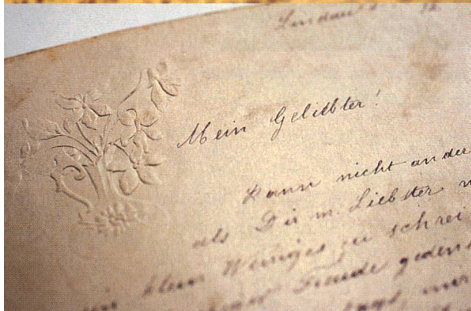 Mein Geliebter!
kann nicht ander
als Dir m. Liebster
ein klein Weniges zu schrei
Freude geden